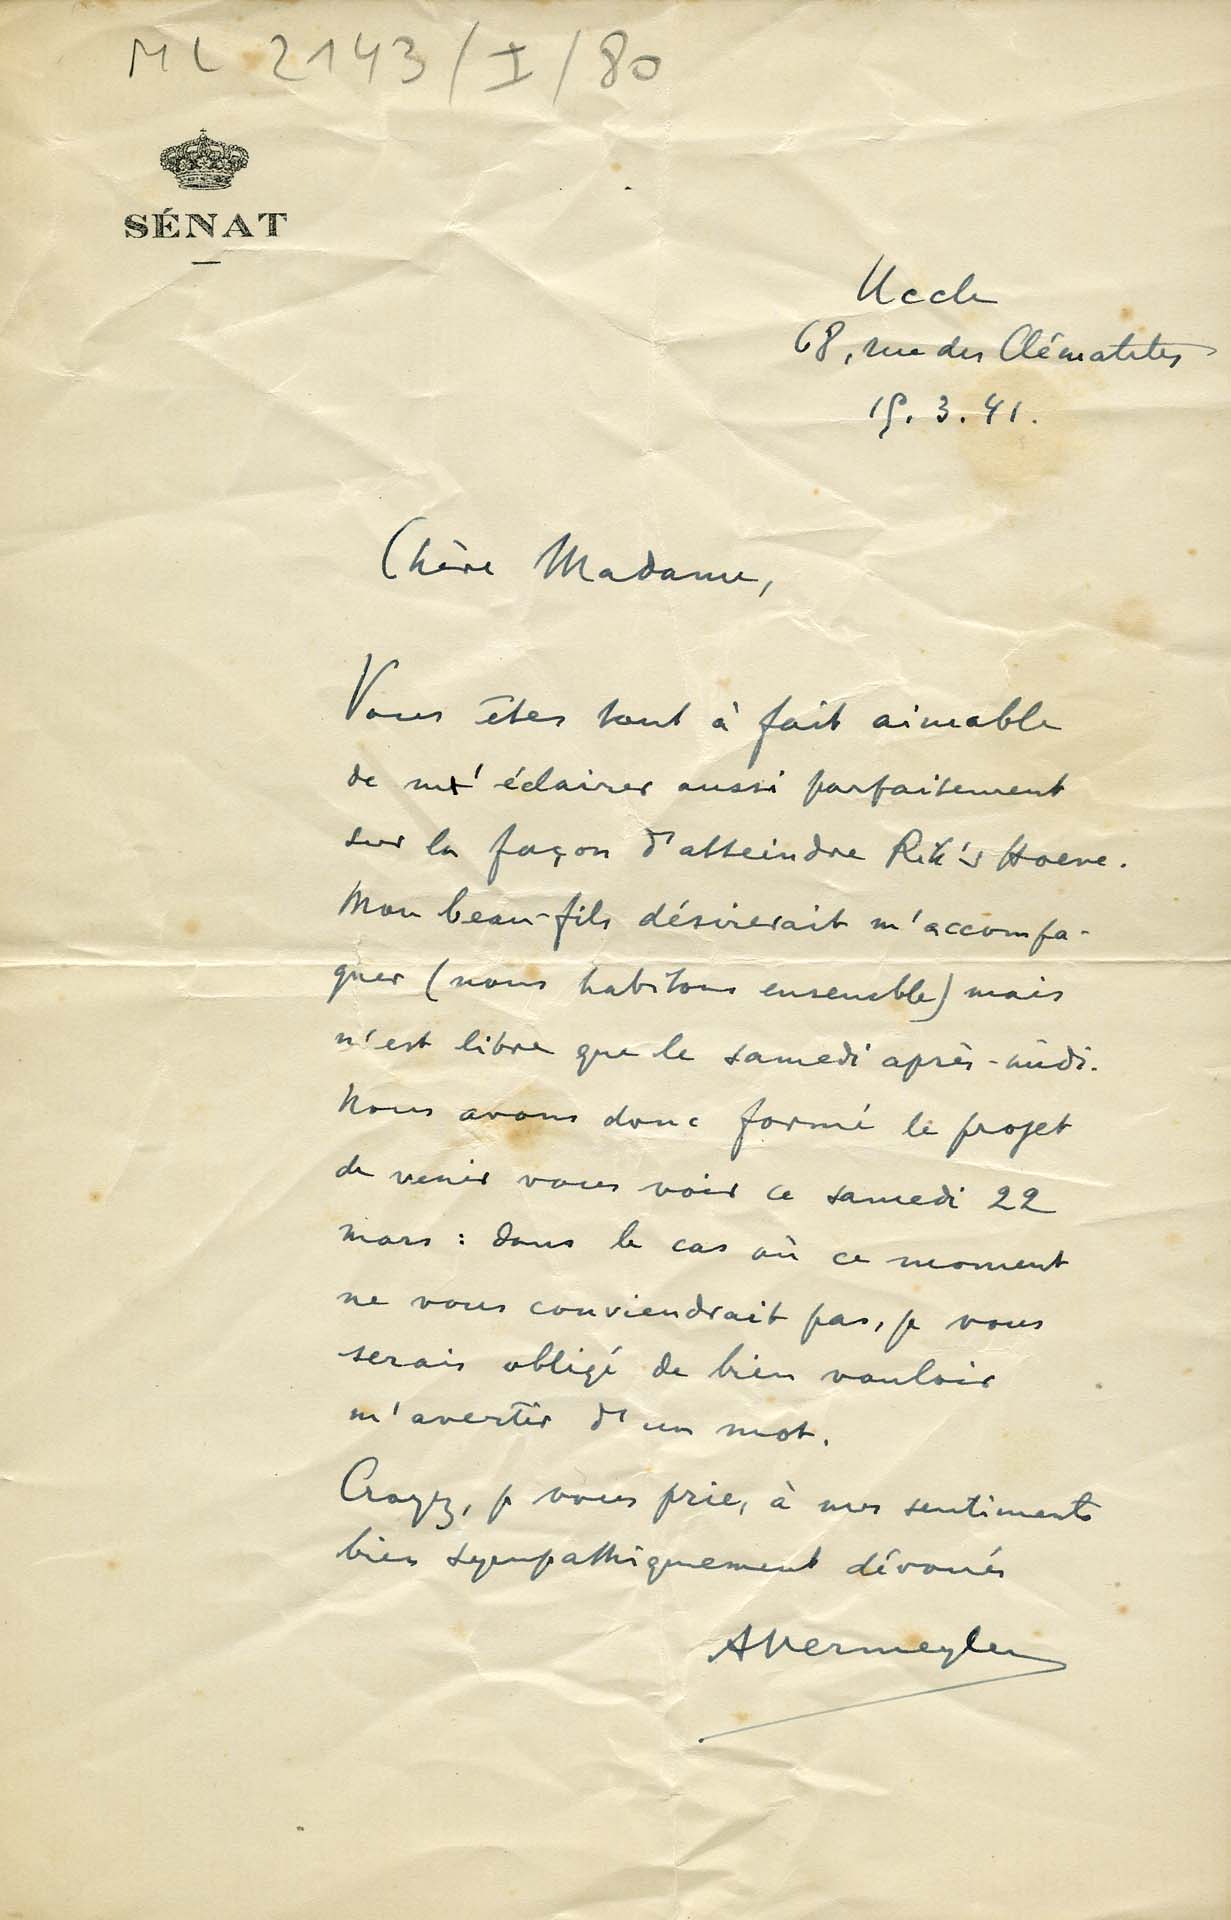 ML 2143/I/80
SÉNAT
Uccle
68, rue des Clématites
15. 3. 41.
Chère Madame,
Vous êtes tout à fait aimable
de m' éclairer aussi parfaitement
sur la façon d'atteindre Rik's Hoeve.
Mon beau-fils désirerait m'accompa-
gner (nous habitons ensemble) mais
n'est libre que le samedi après-midi.
Nous avons donc formé le projet
de venir vous voir ce samedi 22
mars : dans le cas où ce moment
ne vous conviendrait pas, je vous
serais obligé de bien vouloir
m'avertir d'un mot.
Croyez, je vous prie, à mes sentiments
bien sympathiquement dévoués
AVermeylen